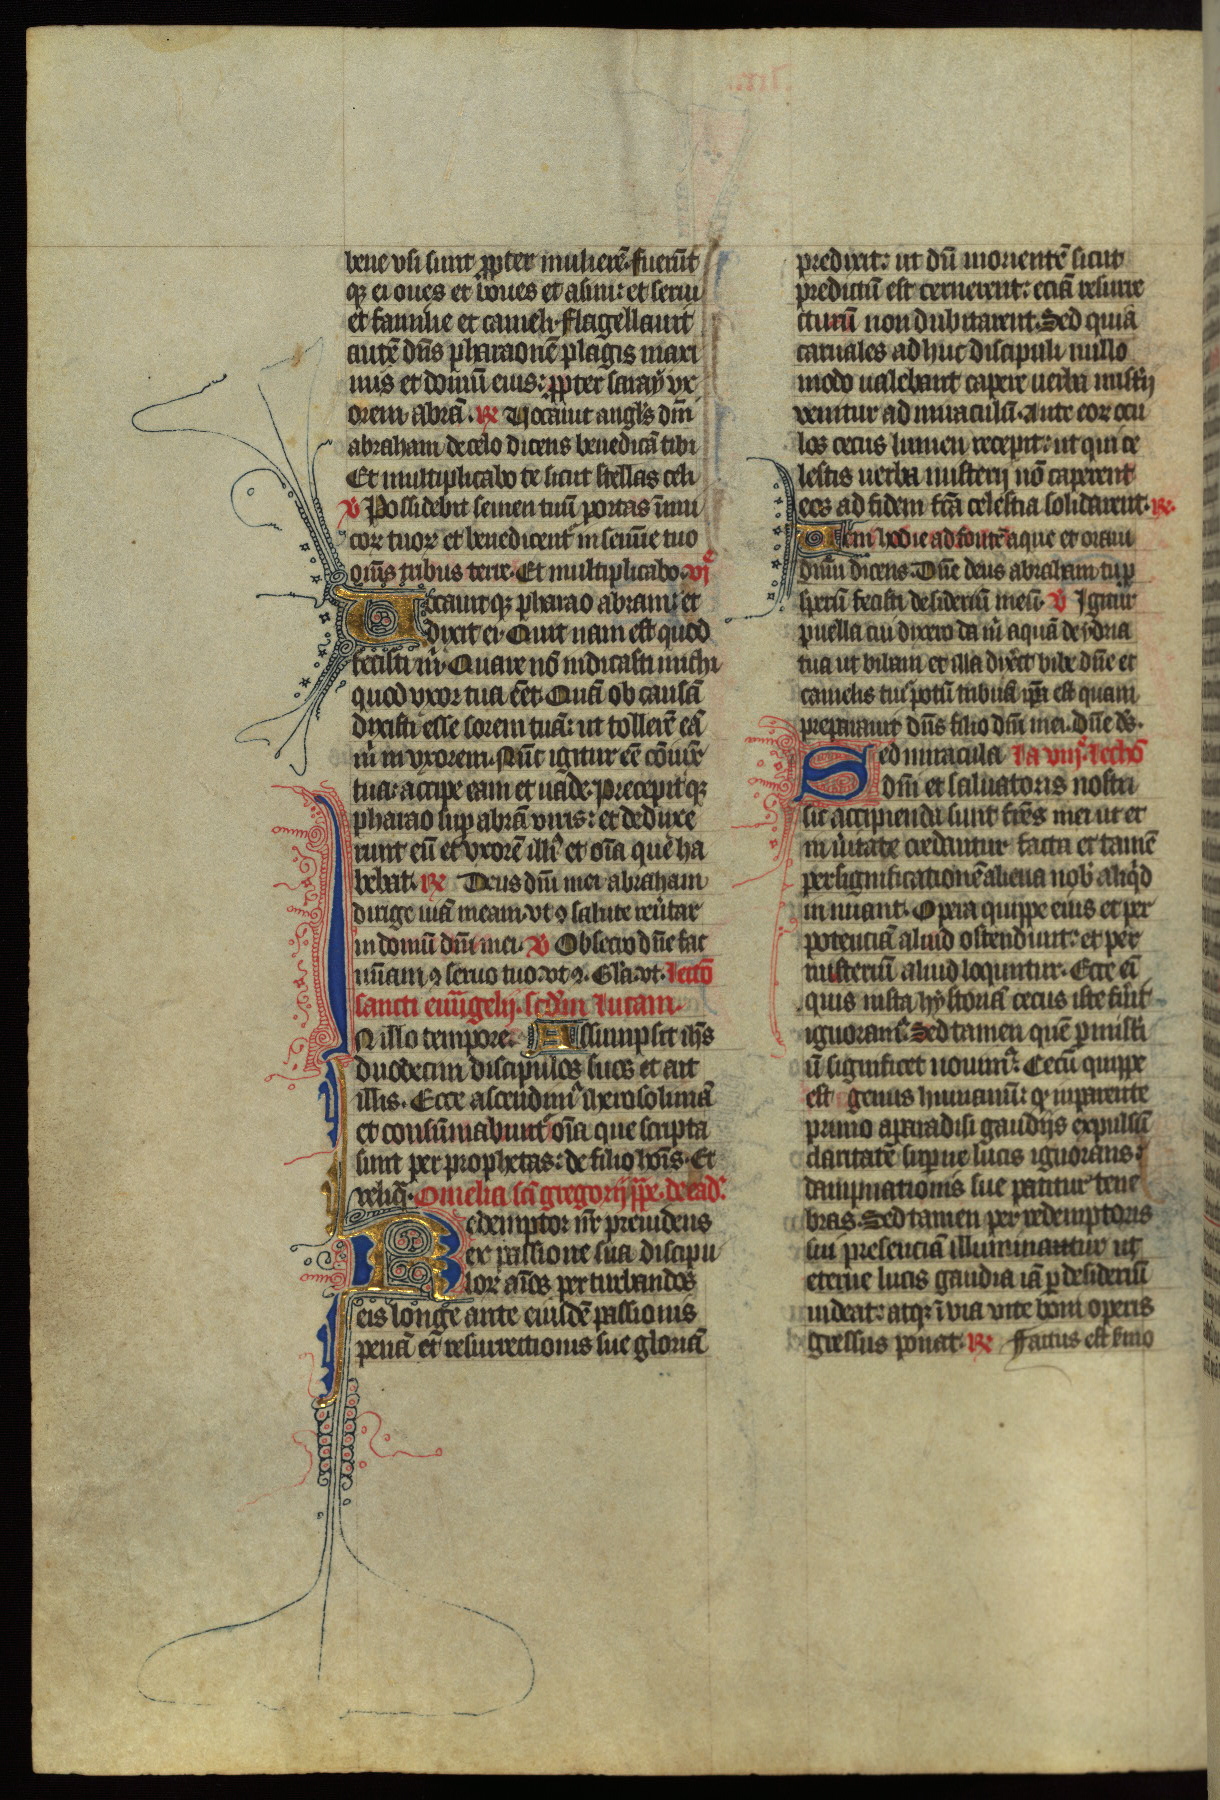 bene vsi sunt ꝓpter mulierē. fuerūt
qꝫ ei oues et boues et asini: et serui
et familie et cameli. flagellauit
autē dn̄s pharaonē plagis maxi
mis et domū eius: ꝓpter saray vx
orem abrā. ℞ Vocauit angl̄s dn̄i
abraham de celo dicens benedicā tibi
Et multiplicabo te sicut stellas celi
V Possidebit semen tuū portas inimi
coꝝ tuoꝝ et benedicent᷑ in semīe tuo
om̄s tribus terre. Et multiplicabo. vjᵉ
Uocauit qꝫ pharao abram: et
dixit ei. Quit nam est quod
fecisti m̄. Quare nō indicasti michi
quod vxor tua ēēt. Quā ob causā
dixisti esse sorem tuā: ut tollerē eā
m̄ in vxorem. Nūc igitur ec̄ cōiūx
tua: accipe eam et uade. Precepit qꝫ
pharao sup̄ abrā viris: et deduxe
runt eū et vxorē illi᷒ et oīa que ha
bebat. ℞ Deus dn̄i mei abraham
dirige uiā meam. vt ꝯ salute reu̇tar
in domū dn̄i mei. V Obsecro dn̄e fac
mīam ꝯ seruo tuo. vt ꝯ. Gl̄a. vt. lectō
sancti euu̅gelij. scd̄m lucam.
IN illo tempore. Assumpsit ih̄s
duodecim discipulos suos et ait
illis. Ecce ascendim᷒ iherosolimā
et consūmabunt᷑ oīa que scripta
sunt per prophetas: de filio hoīs. Et
reliq̄. Omelia sc̄i gregorij pp̄e. de eadē.
Redemptor nr̄ preuidens
ex passione sua discipu
loꝝ aīos perturbandos
eis longe ante eiusdē passionis
penā et resurrectionis sue gloriā
predixit: ut dū morientē sicut
predictū est cernerent: eciā resurre
cturū non dubitarent. Sed quia
carnales adhuc discipuli nullo
modo ualebant capere uerba mist̄ij
venitur ad miraculū. Ante eoꝝ ocu
los cecus lumen recepit: ut qui ce
lestis uerba misterij nō caperent
eos ad fidem fc̄a celestia solidarent. ℞
Veni hodie ad fontē aque et oraui
dnm̄ dicens. Dn̄e deus abraham tu ꝓ
sperū fecisti desideriū meū. V Igitur
puella cui dixero da m̄ aquā de ydria
tua ut bibam et illa dixerit bibe dn̄e et
camelis tuis potū tribuā ip̄a est quam
preparauit dn̄s filio dn̄i mei. dn̄e ds̄.
Sed miracula l̄a viijᵃ. lectō
dn̄i et saluatoris nostri
sic accipienda sunt fr̄es mei ut et
in u̇itate credantur facta et tamē
per significationē aliena nob̄ aliq̇d
innuant. Opera quippe eius et per
potenciā aliud ostendunt: et per
misteriū aliud loquntur. Ecce ei̅
quis iuxta hystoriā cecus iste fu̇it
ignoram᷒. Sed tamen quē ꝑ misti̅
ū significet nouim᷒. Cecū quippe
est genus humanū: qꝫ in parente
primo a paradisi gaudijs expulsū
claritatē sup̄ne lucis ignorans:
dampnationis sue patitur tene
bras. Sed tamen per redemptoris
sui presenciā illuminantur ut
eterne lucis gaudia iā ꝑ desideriū
uideat: atqꝫ ī via vite boni operis
gressus ponat. ℞ Factus est sermo